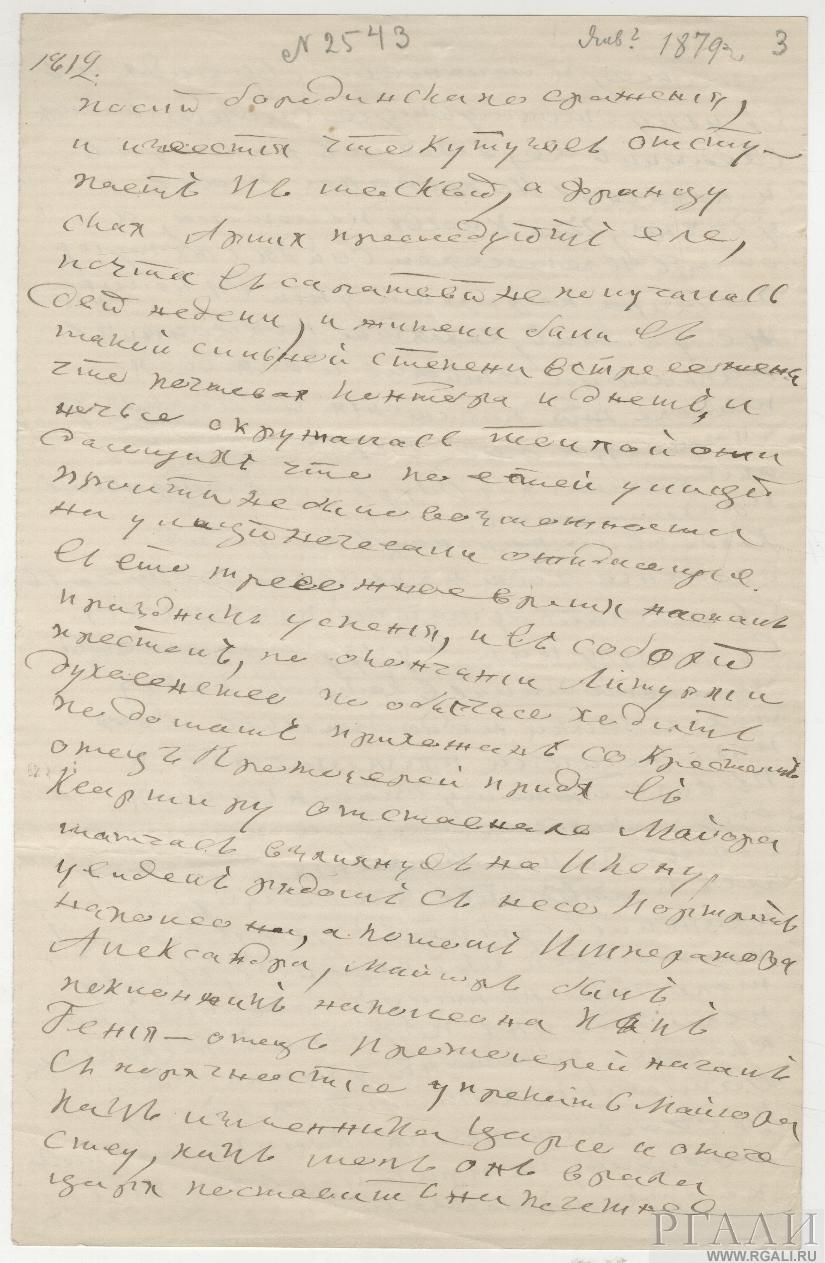 N 2543
Янв? 1879 г. 3
1812.
после бородинскаго сражения,
и известия что Кутузовъ отсту-
паетъ къ москве, а Францу
ская Армия преследуетъ его,
почта въ саратове не получалась
две недели, и жители были въ
такой сильной степени встревожены
что почтовая контора и днемъ, и
ночью окружалась толпой ожи
дающихъ что по етой улице
пройти не было возможности
на улице ночевали ожидающие.
въ ето тревожное время насталъ
праздникъ успения, и въ соборе
престолъ, по окончании Литургии
духовенство по обычаю ходитъ
по домамъ прихожанъ со Крестомъ
отецъ Протоиерей придя въ
Квартиру отставнаго Майора
взглянувъ на Икону,
увиделъ рядомъ съ нею Портретъ
наполеона, а потомъ Императора
Александра, Майоръ былъ
поклонникъ наполеона какъ
Гения — отецъ Протоиерей началъ
съ горячностию упрекать Майора
какъ изменника Царю и отече
ству, какъ могъ онъ врага
царя поставить на почетное
РГАЛИ
WWW.RGALI.RU